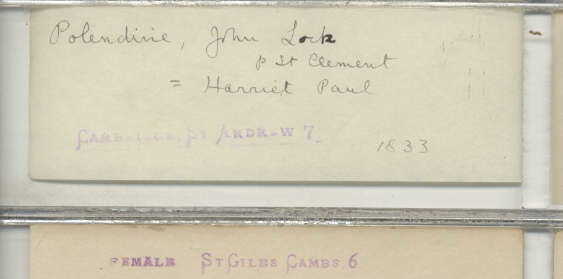 Polendine, John Lock
p St Clement
= Harriet Paul
CAMBRIDGE, ST ANDREW 7.
1833
FEMALE ST GILES CAMBS. 6